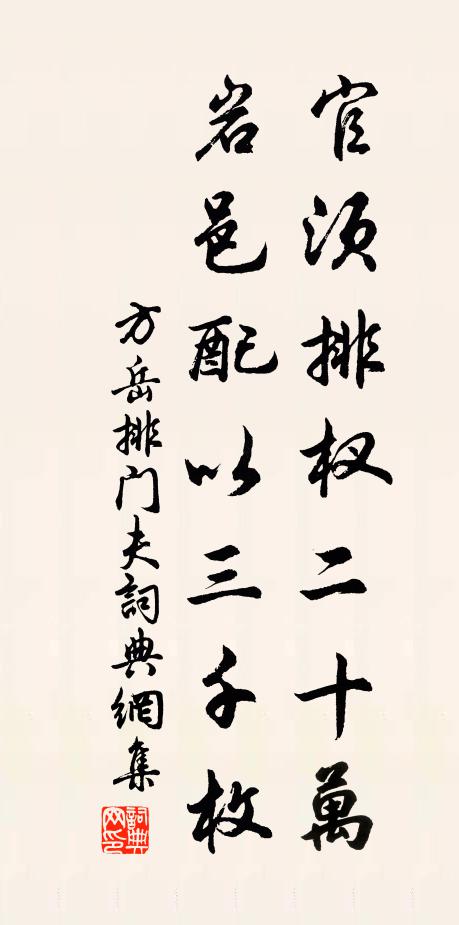 官须排杈二十萬
岩邑配以三千枚
方岳排门夫詞典網集
詞典網印